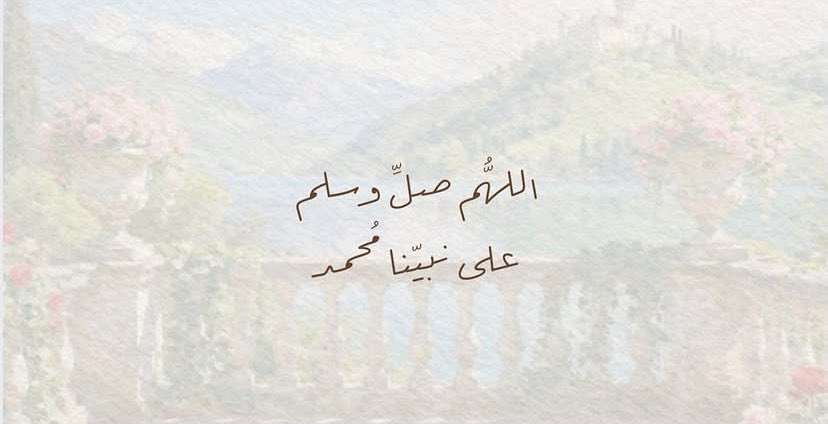 اللهُّم صلِّ وسلم
على نبيّنا مُحمد